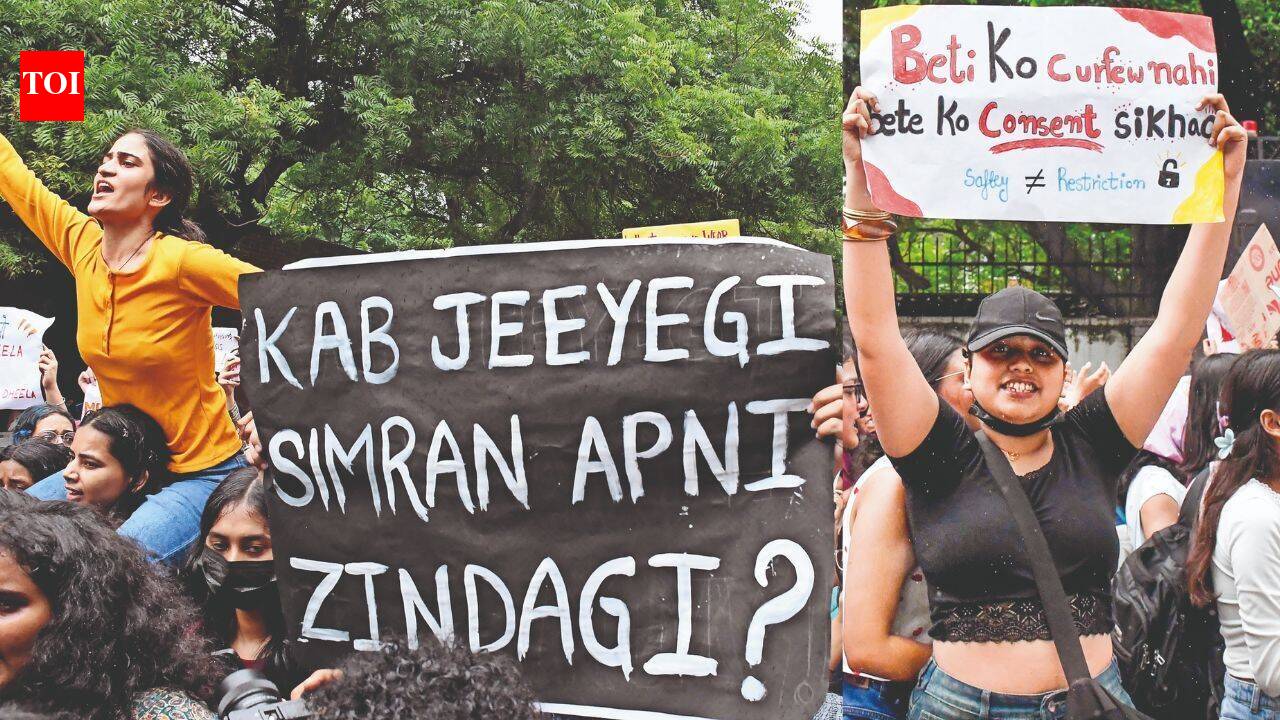 TOI
KAB JEEYEGI
SIMRAN APNI
ZINDAGI?
Beti Ko Curfew nahi
bete Ko Consent sikhao
Saftey ≠ Restriction